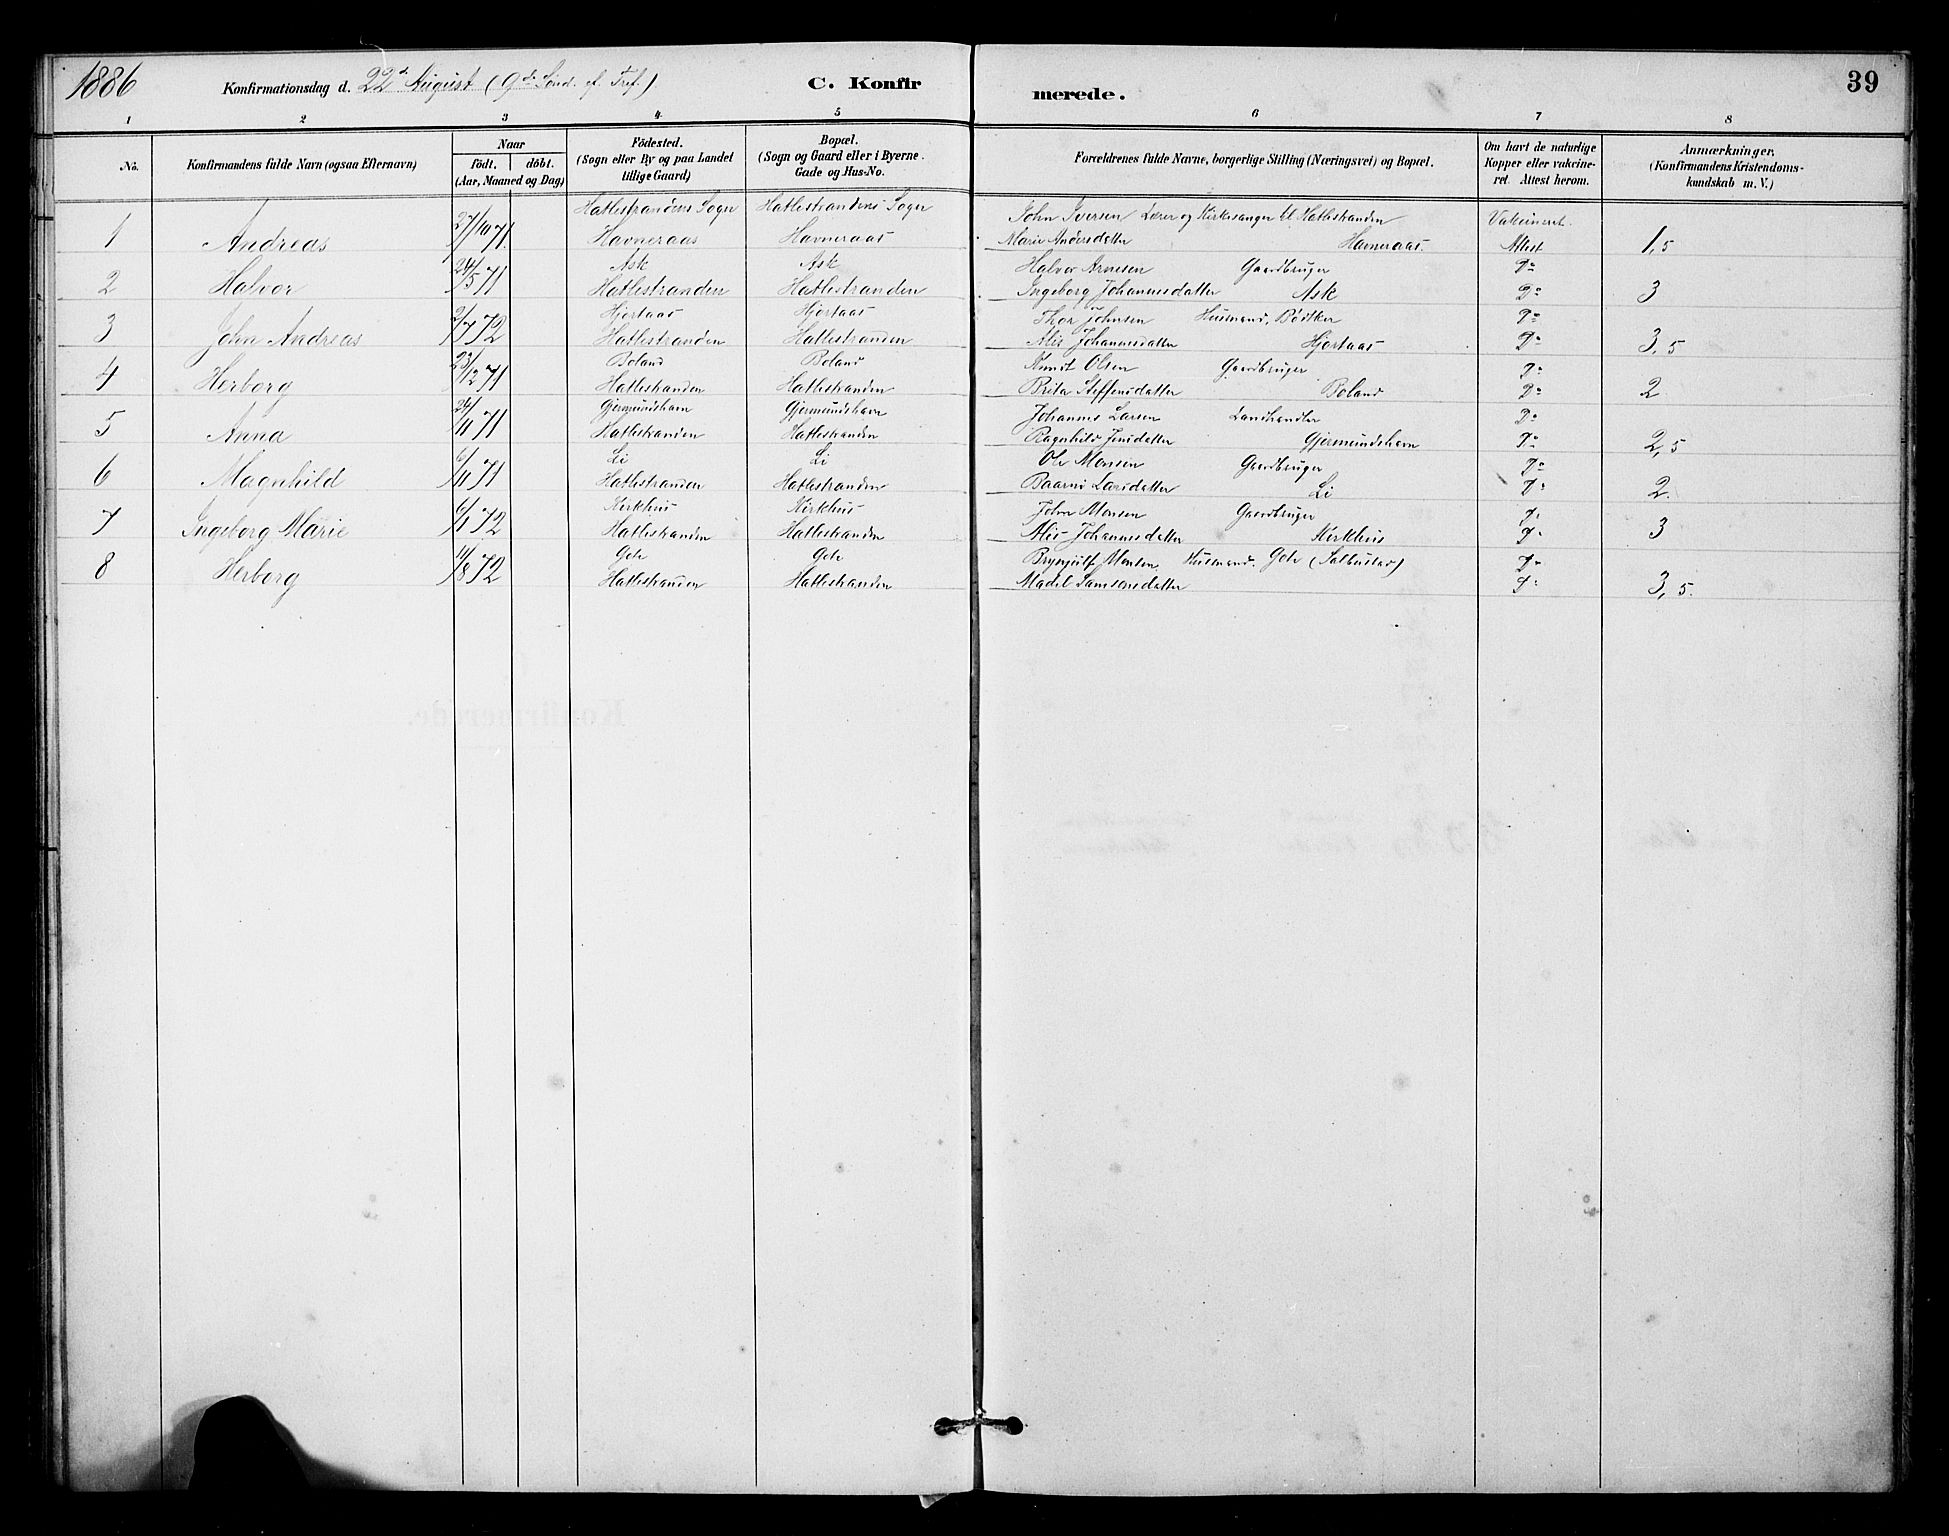 1886
Konfirmationsdag d. 22de August (9de Sönd. ef. Tref.)
C. Konfirmerede.
39
1 2 3 4 5 6 7 8
No.
Konfirmandens fulde Navn (ogsaa Efternavn)
Naar
födt. döbt.
(Aar, Maaned og Dag)
Födested.
(Sogn eller By og paa Landet
tillige Gaard)
Bopæl.
(Sogn og Gaard eller i Byerne.
Gade og Hus-No.
Forældrenes fulde Navne, borgerlige Stilling (Næringsvei) og Bopæl.
Om havt de naturlige
Kopper eller vakcine-
ret. Attest herom.
Anmærkninger,
(Konfirmandens Kristendoms-
kundskab m. V.)
Hatlestrandens Sogn Hatlestrandens Sogn John Iversen Lærer og Kirkesanger til Hatlestranden Vakcineret.
1 Andreas 27/10 71. Havneraas Havneraas Marie Andersdatter Havneraas. Attest 1,5
Ask Ask Halvor Arnesen Gaardbruger Do
2 Halvor 24/5 71 Hatlestranden Hatlestranden Ingeborg Johannesdatter Ask Do 3
Hjortaas Hjortaas Thor Johnsen Husmand, Bödtker Do
3 John Andreas 2/7 72 Hatlestranden Hatlestranden Alis Johannesdatter Hjortaas Do 3,5
Boland Boland Knut Olsen Gaardbruger Do
4 Herborg 23/12 71 Hatlestranden Hatlestranden Brita Steffensdatter Boland Do 2
Gjermundshavn Gjermundshavn Johannes Larsen Landhandler Do
5 Anna 24/11 71 Hatlestranden Hatlestranden Ragnhild Jensdatter Gjermundshavn Do 2,5
Li Li Ole Monsen Gaardbruger Do
6 Magnhild 6/11 71 Hatlestranden Hatlestranden Baarni Larsdatter Li Do 2.
Kirkhus Kirkhus John Monsen Gaardbruger Do
7 Ingeborg Marie 6/1 72 Hatlestranden Hatlestranden Alis Johannesdatter Kirkhus Do 3
Gole Gole Brynjulf Monsen Husmand. Gole Do
8 Herborg 11/8 72 Hatlestranden Hatlestranden Madel Samsonsdatter Do 3,5.